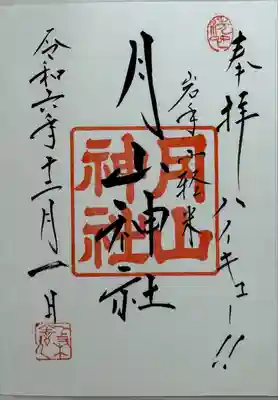 奉拝 ハイキュー!!
岩手 軽米
月山神社
月山神社
令和六年十二月一日